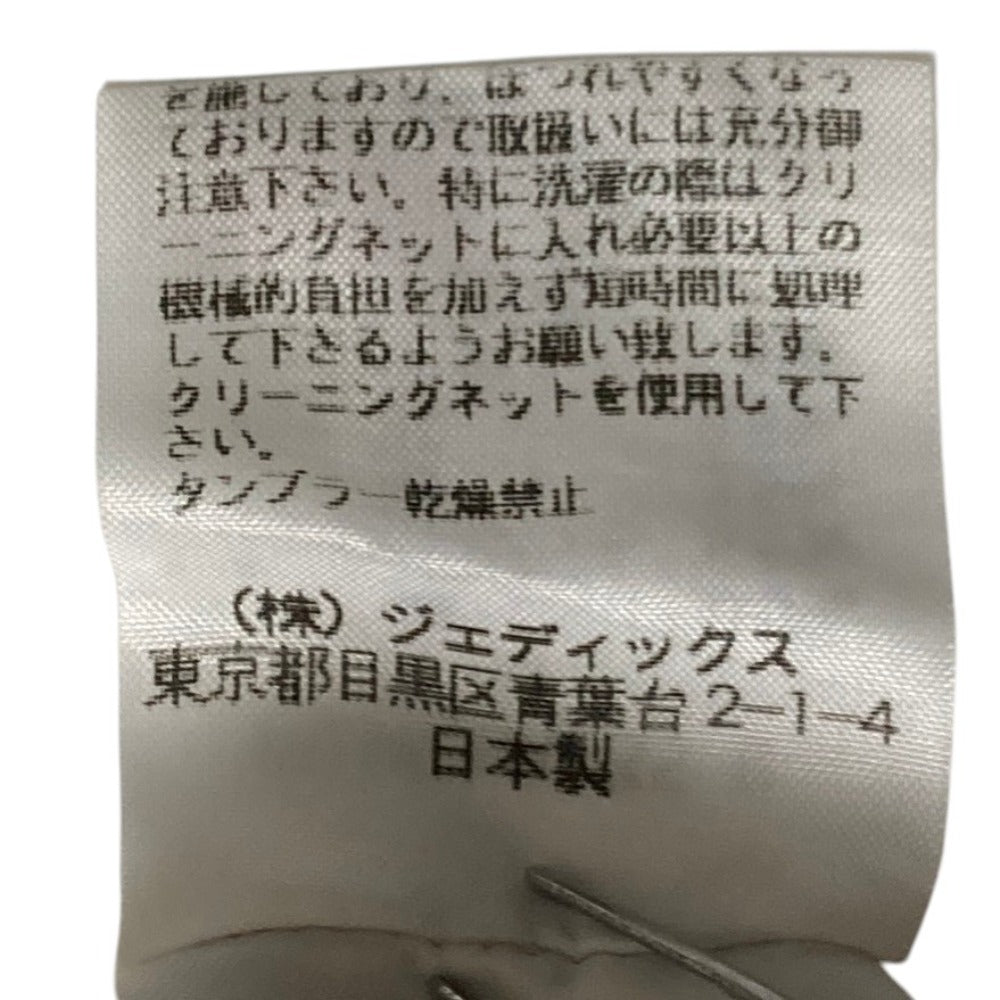 を施しており、ほつれやすくなっ
ておりますので取扱いには充分御
注意下さい。特に洗濯の際はクリ
ーニングネットに入れ必要以上の
機械的負担を加えず短時間に処理
して下さるようお願い致します。
クリーニングネットを使用して下
さい。
タンブラー乾燥禁止
(株)ジェディックス
東京都目黒区青葉台2-1-4
日本製